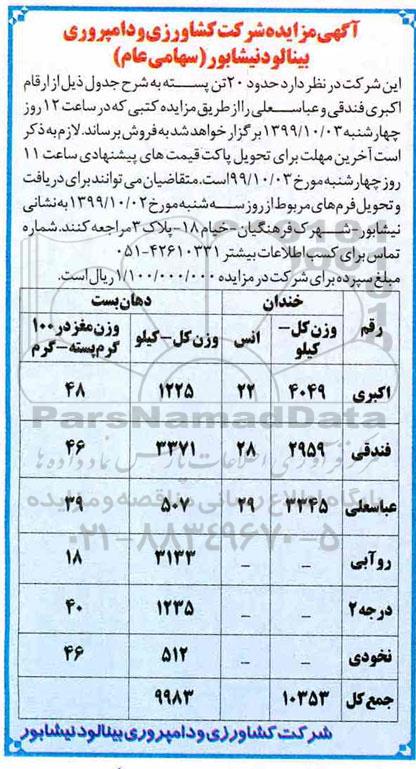 آگهی مزایده شرکت کشاورزی و دامپروری
بینالود نیشابور (سهامی عام)
این شرکت در نظر دارد حدود ۲۰ تن پسته به شرح جدول ذیل از ارقام
اکبری فندقی و عباسعلی را از طریق مزایده کتبی که در ساعت ۱۲ روز
چهارشنبه ۱۳۹۹/۱۰/۰۳ برگزار خواهد شد به فروش برساند. لازم به ذکر
است آخرین مهلت برای تحویل پاکت قیمت های پیشنهادی ساعت ۱۱
روز چهارشنبه مورخ ۹۹/۱۰/۰۳ است. متقاضیان می توانند برای دریافت
و تحویل فرم‌های مربوط از روز سه شنبه مورخ ۱۳۹۹/۱۰/۰۲ به نشانی
نیشابور - شهرک فرهنگیان - خیام ۱۸ - پلاک ۳ مراجعه کنند. شماره
تماس برای کسب اطلاعات بیشتر ۴۲۶۱۰۳۳۱-۰۵۱
مبلغ سپرده برای شرکت در مزایده ۱/۱۰۰/۰۰۰/۰۰۰ ریال است.
رقم خندان دهان بست
وزن کل - کیلو انس وزن کل - کیلو وزن مغز در ۱۰۰ گرم پسته - گرم
اکبری ۴۰۴۹ ۲۲ ۱۲۲۵ ۴۸
فندقی ۲۹۵۹ ۲۸ ۳۳۷۱ ۴۶
عباسعلی ۳۳۴۵ ۲۹ ۵۰۷ ۳۹
روآبی _ _ ۳۱۳۳ ۱۸
درجه ۲ _ _ ۱۲۳۵ ۴۰
نخودی _ _ ۵۱۲ ۴۶
جمع کل ۱۰۳۵۳ ۹۹۸۳
شرکت کشاورزی و دامپروری بینالود نیشابور
ParsNamadData
پایگاه اطلاع رسانی مناقصه و مزایده
۰۲۱-۸۸۳۴۹۶۷۰-۵